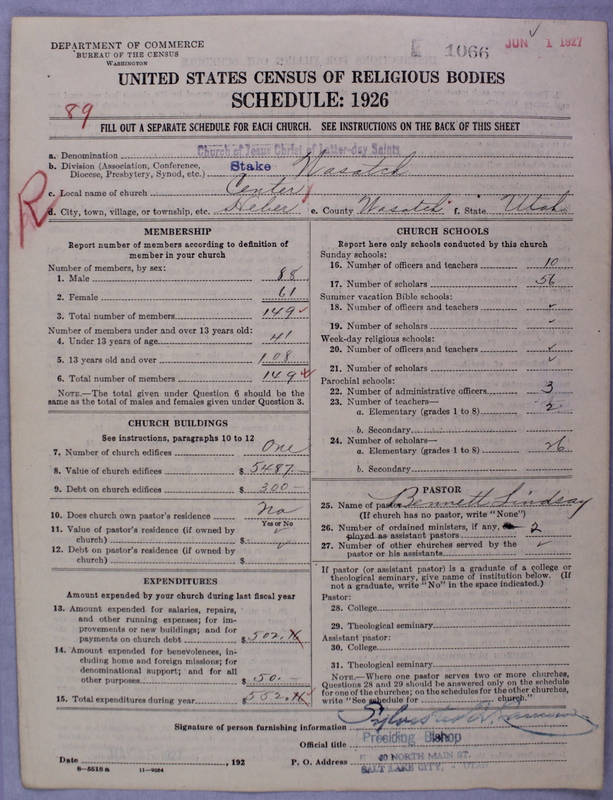 DEPARTMENT OF COMMERCE
BUREAU OF THE CENSUS
WASHINGTON
E 1066
JUN 1 1927
UNITED STATES CENSUS OF RELIGIOUS BODIES
SCHEDULE: 1926
89
FILL OUT A SEPARATE SCHEDULE FOR EACH CHURCH. SEE INSTRUCTIONS ON THE BACK OF THIS SHEET
a. Denomination Church of Jesus Christ of Latter-day Saints
b. Division (Association, Conference, Diocese, Presbytery, Synod, etc.) Stake Wasatch
c. Local name of church Center
R
d. City, town, village, or township, etc. Heber e. County Wasatch f. State Utah
MEMBERSHIP
Report number of members according to definition of
member in your church
Number of members, by sex:
1. Male 88
2. Female 61
3. Total number of members 149
Number of members under and over 13 years old:
4. Under 13 years of age 41
5. 13 years old and over 108
6. Total number of members 149
NOTE.—The total given under Question 6 should be
same as the total of males and females given under Question 3.
CHURCH BUILDINGS
See instructions, paragraphs 10 to 12
7. Number of church edifices One
8. Value of church edifices $ 5487
9. Debt on church edifices $ 300
10. Does church own pastor's residence No
Yes or No
11. Value of pastor's residence (if owned by
church) $
12. Debt on pastor's residence (if owned by
church) $
EXPENDITURES
Amount expended by your church during last fiscal year
13. Amount expended for salaries, repairs,
and other running expenses; for im-
provements or new buildings; and for
payments on church debt $ 502.
14. Amount expended for benevolences, in-
cluding home and foreign missions; for
denominational support; and for all
other purposes $ 50.—
15. Total expenditures during year $ 552.
CHURCH SCHOOLS
Report here only schools conducted by this church
Sunday schools:
16. Number of officers and teachers 10
17. Number of scholars 56
Summer vacation Bible schools:
18. Number of officers and teachers
19. Number of scholars
Week-day religious schools:
20. Number of officers and teachers
21. Number of scholars
Parochial schools:
22. Number of administrative officers 3
23. Number of teachers—
a. Elementary (grades 1 to 8) 2
b. Secondary
24. Number of scholars—
a. Elementary (grades 1 to 8) 26
b. Secondary
PASTOR
25. Name of pastor Bennett Lindsay
(If church has no pastor, write "None")
26. Number of ordained ministers, if any,
ployed as assistant pastors 2
27. Number of other churches served by the
pastor or his assistants
If pastor (or assistant pastor) is a graduate of a college or
theological seminary, give name of institution below. (If
not a graduate, write "No" in the space indicated.)
Pastor:
28. College
29. Theological seminary
Assistant pastor:
30. College
31. Theological seminary
NOTE.—Where one pastor serves two or more churches,
Questions 28 and 29 should be answered only on the schedule
for one of the churches; on the schedules for the other churches,
write "See schedule for church."
Signature of person furnishing information
Official title Presiding Bishop
Date , 192 P. O. Address 40 NORTH MAIN ST.
SALT LAKE CITY, UTAH
8—5518a 11—9264